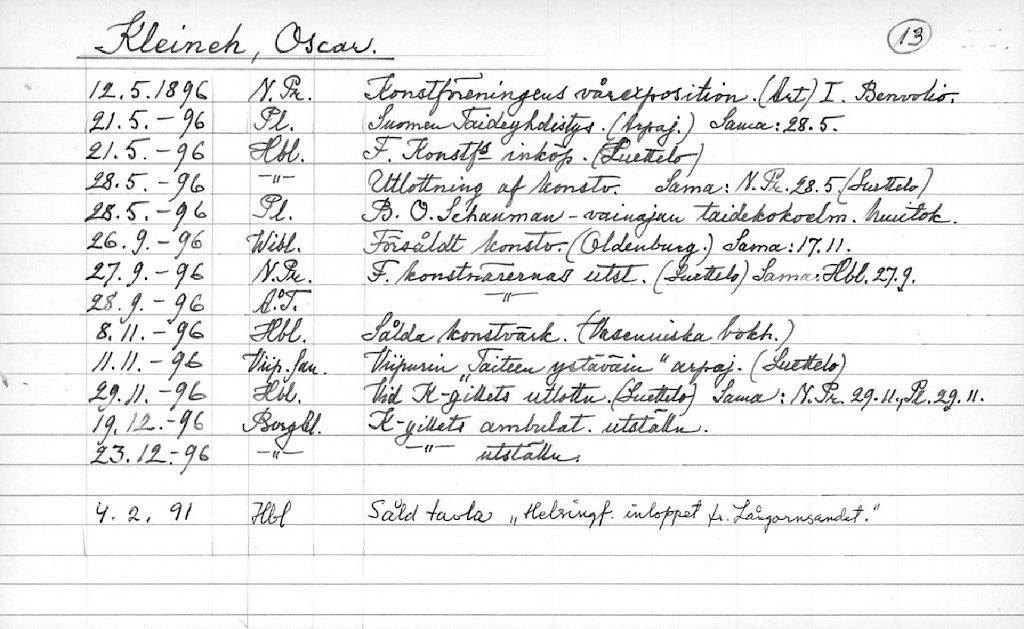 Kleineh, Oscar. 13
12.5.1896 N.Pr. Konstföreningens vårexposition. (Art) I. Benvolio.
21.5.-96 Pl. Suomen Taideyhdistys. (Arpaj.) Sama: 28.5.
21.5.-96 Hbl. F. Konstf:s inköp. (Luettelo)
28.5.-96 -"- Utlottning af konstv. Sama: N.Pr. 28.5. (Luettelo)
28.5.-96 Pl. B. O. Schauman-vainajan taidekokoelm. huutok.
26.9.-96 Wibl. Försåldt konstv. (Oldenburg.) Sama: 17.11.
27.9.-96 N.Pr. F. konstnärernas utst. (Luettelo) Sama: Hbl. 27.9.
28.9.-96 Å.T. -"-
8.11.-96 Hbl. Sålda konstvärk. (Waseniuska bokh.)
11.11.-96 Viip.San. Viipurin "Taiteen ystäväin" arpaj. (Luettelo)
29.11.-96 Hbl. Vid K-gillets utlottn. (Luettelo) Sama: N.Pr. 29.11., Pl. 29.11.
19.12.-96 Borgbl. K-gillets ambulat. utställn.
23.12.-96 -"- -"- utställn.
4.2.91 Hbl Såld tavla "Helsingf. inloppet fr. Långörnsundet."